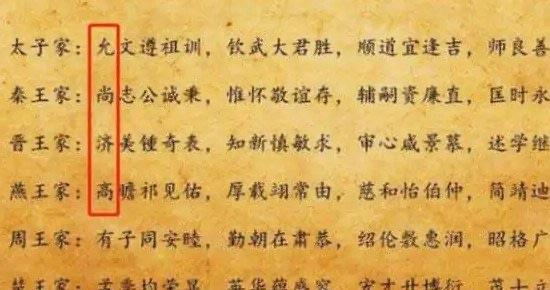 太子家：允文遵祖训，钦武大君胜，顺道宜逢吉，师良善
秦王家：尚志公诚秉，惟怀敬谊存，辅嗣资廉直，匡时永
晋王家：济美锺奇表，知新慎敏求，审心咸景慕，述学继
燕王家：高瞻祁见佑，厚载翊常由，慈和怡伯仲，简靖迪
周王家：有子同安睦，勤朝在肃恭，绍伦敷惠润，昭格广
楚王家：孟季均荣显，英华蕴盛容，宏才升博衍，茂士立